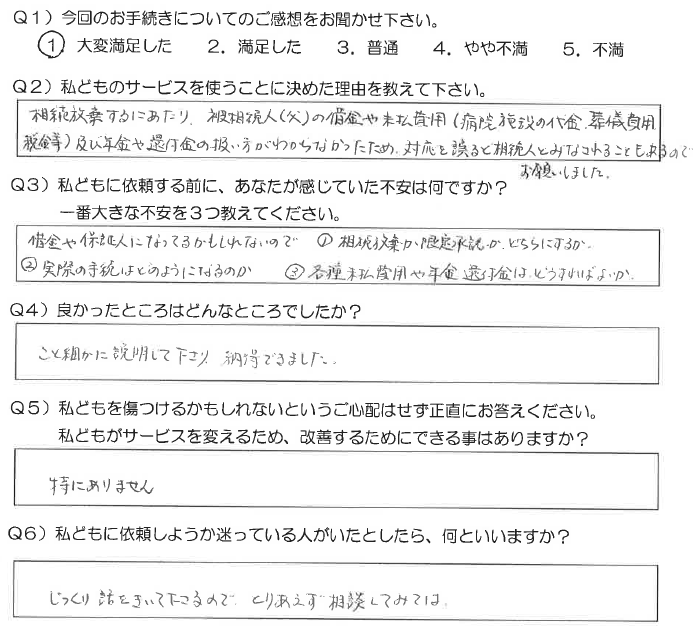 Q1）今回のお手続きについてのご感想をお聞かせ下さい。
① 大変満足した　2．満足した　3．普通　4．やや不満　5．不満
Q2）私どものサービスを使うことに決めた理由を教えて下さい。
相続放棄するにあたり、被相続人(父)の借金や未払費用(病院施設の代金、葬儀費用、
税金等)及び年金や還付金の扱い方がわからなかったため、対応を誤ると相続人とみなされることもあるので
お願いしました。
Q3）私どもに依頼する前に、あなたが感じていた不安は何ですか？
一番大きな不安を３つ教えてください。
借金や保証人になってるかもしれないので　①相続放棄か限定承認か、どちらにするか、
②実際の手続はどのようになるのか　③各種未払費用や年金、還付金は、どうすればよいか、
Q4）良かったところはどんなところでしたか？
こと細かに説明して下さり、納得できました。
Q5）私どもを傷つけるかもしれないというご心配はせず正直にお答えください。
私どもがサービスを変えるため、改善するためにできる事はありますか？
特にありません
Q6）私どもに依頼しようか迷っている人がいたとしたら、何といいますか？
じっくり話をきいて下さるので、とりあえず相談してみては、